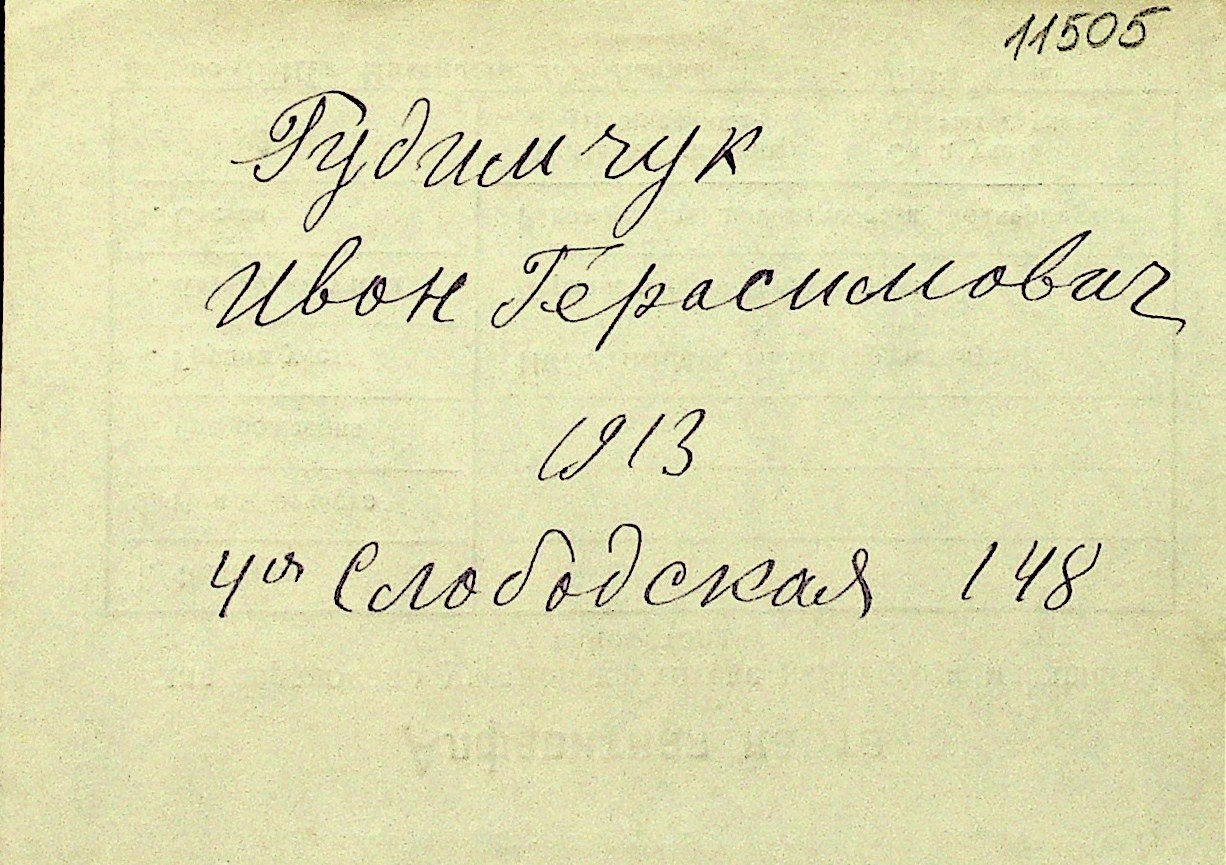 11505
Гудимчук
Иван Герасимович
1913
4ая Слободская 148